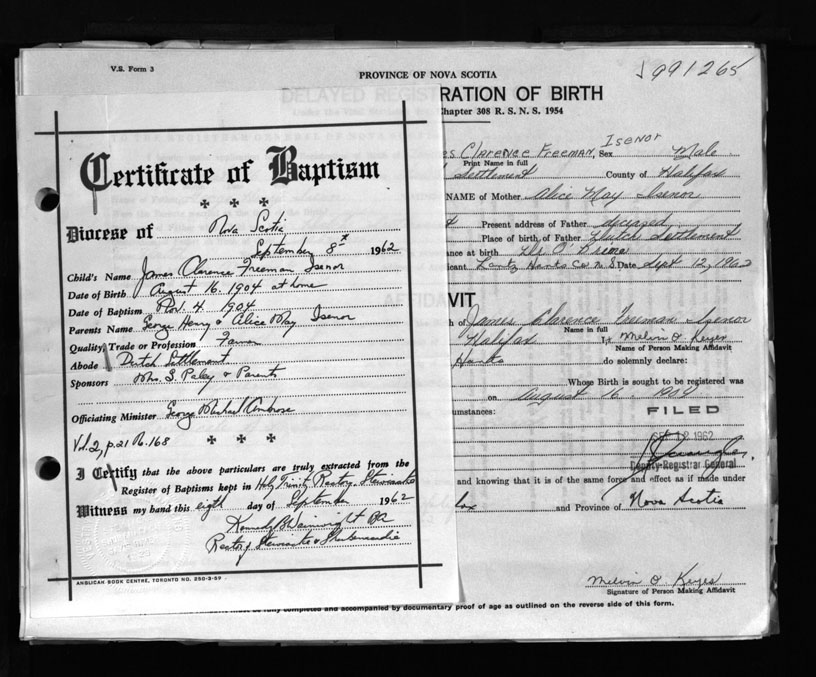 V.S. Form 3
PROVINCE OF NOVA SCOTIA
J991265
DELAYED REGISTRATION OF BIRTH
Chapter 308 R. S. N. S. 1954
es Clarence Freeman, Isenor Sex Male
Print Name in full
Settlement County of Halifax
NAME of Mother Alice May Isenor
Present address of Father deceased
Place of birth of Father Dutch Settlement
ance at birth
icant Lantz Hants Co N.S. Date Sept 12, 1962
VIT
h of James Clarence Freeman Isenor
Name in full
Halifax I, Melvin O Keyes
Name of Person Making Affidavit
Hants do solemnly declare:
Whose Birth is sought to be registered was
on August 16, 1904
umstances:
FILED
1962
Deputy-Registrar General
and knowing that it is of the same force and effect as if made under
fax and Province of Nova Scotia
Melvin O. Keyes
Signature of Person Making Affidavit
must be fully completed and accompanied by documentary proof of age as outlined on the reverse side of this form.
Certificate of Baptism
Diocese of Nova Scotia
September 8th 1962
Child's Name James Clarence Freeman Isenor
Date of Birth August 16, 1904 at home
Date of Baptism Nov. 4 1904
Parents Name George Henry & Alice May Isenor
Quality, Trade or Profession Farmer
Abode Dutch Settlement
Sponsors Mrs. S. Paley & Parents
Officiating Minister George Michael Ambrose
Vol. 2, p. 21 No. 168
I Certify that the above particulars are truly extracted from the
Register of Baptisms kept in Holy Trinity Rectory, Stewiacke
Witness my hand this eighth day of September 1962
Wainwright
Rector of Stewiacke & Shubenacadie
ANGLICAN BOOK CENTRE, TORONTO NO. 250-2-59